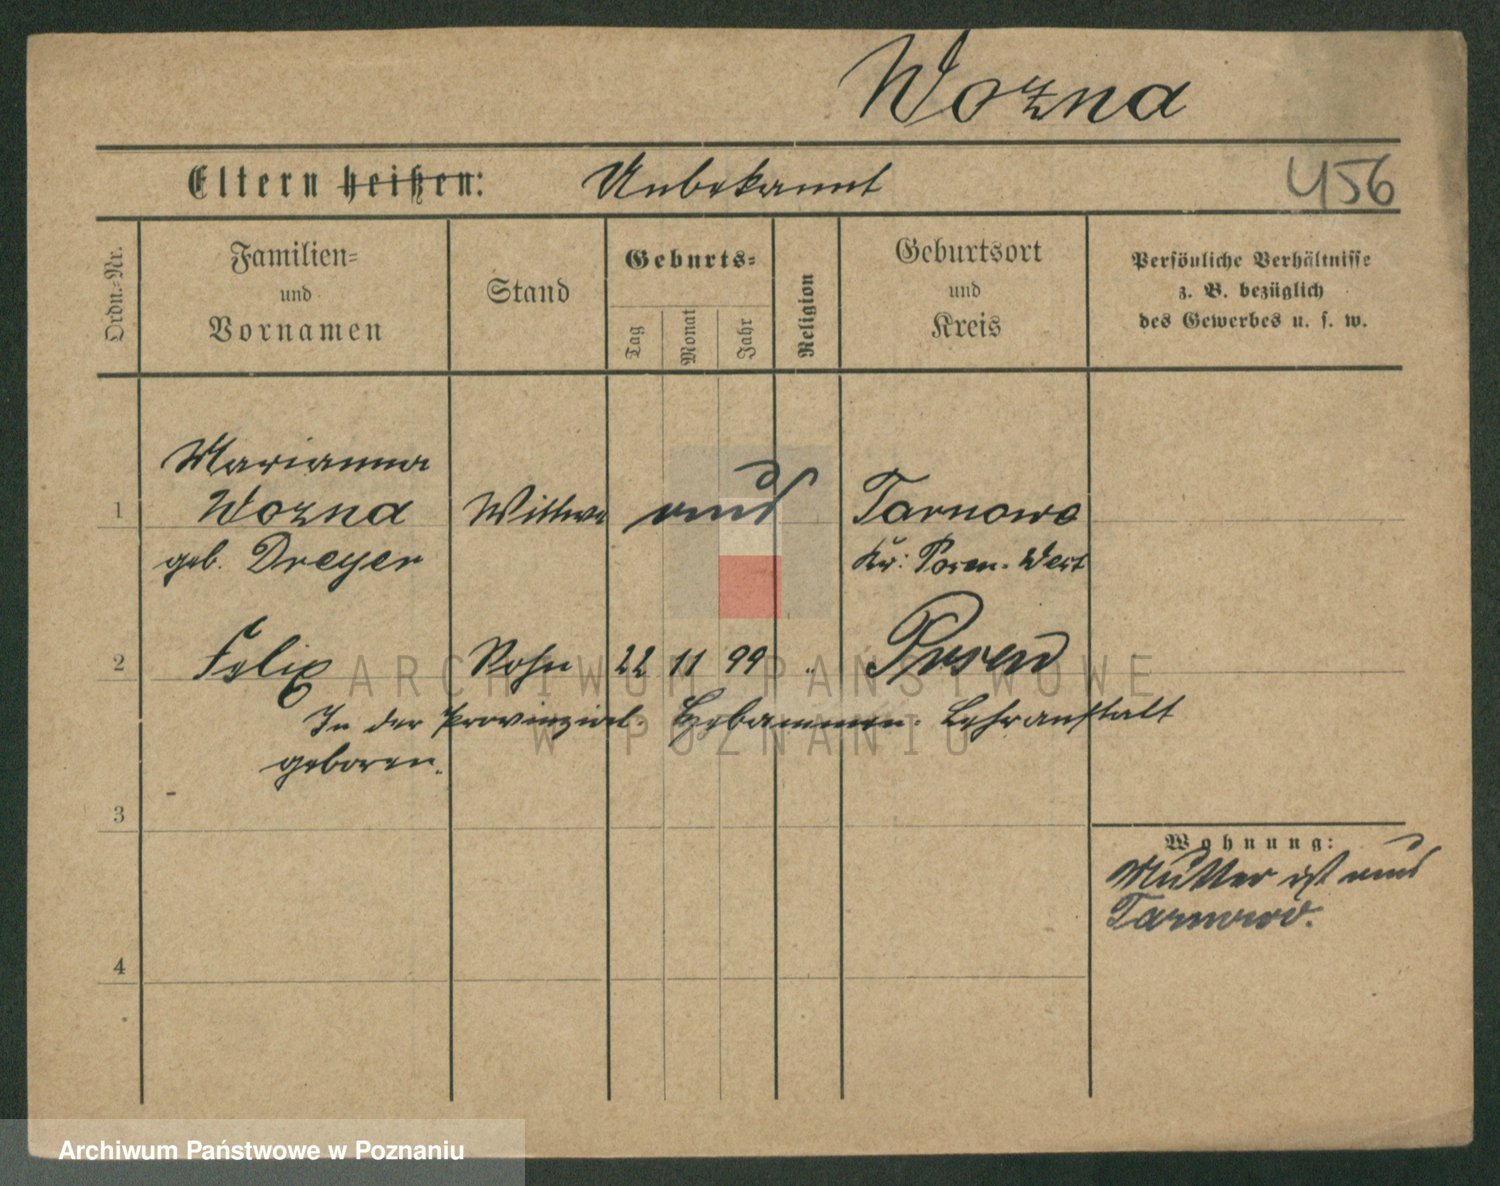 Wozna
Eltern heißen: Unbekannt
456
Ordn.-Nr.
Familien-
und
Vornamen
Stand
Geburts-
Tag
Monat
Jahr
Religion
Geburtsort
und
Kreis
Persönliche Verhältnisse
z. B. bezüglich
des Gewerbes u. s. w.
Marianna
1 Wozna Wittwe aus Tarnowo
geb. Dreyer Kr: Posen-West
2 Felix Sohn 22 11 99 " Posen
In der Provinzial-Hebammen-Lehranstalt
geboren.
3
Wohnung:
Mutter ist aus
Tarnowo.
4
ARCHIWUM PAŃSTWOWE
W POZNANIU
Archiwum Państwowe w Poznaniu